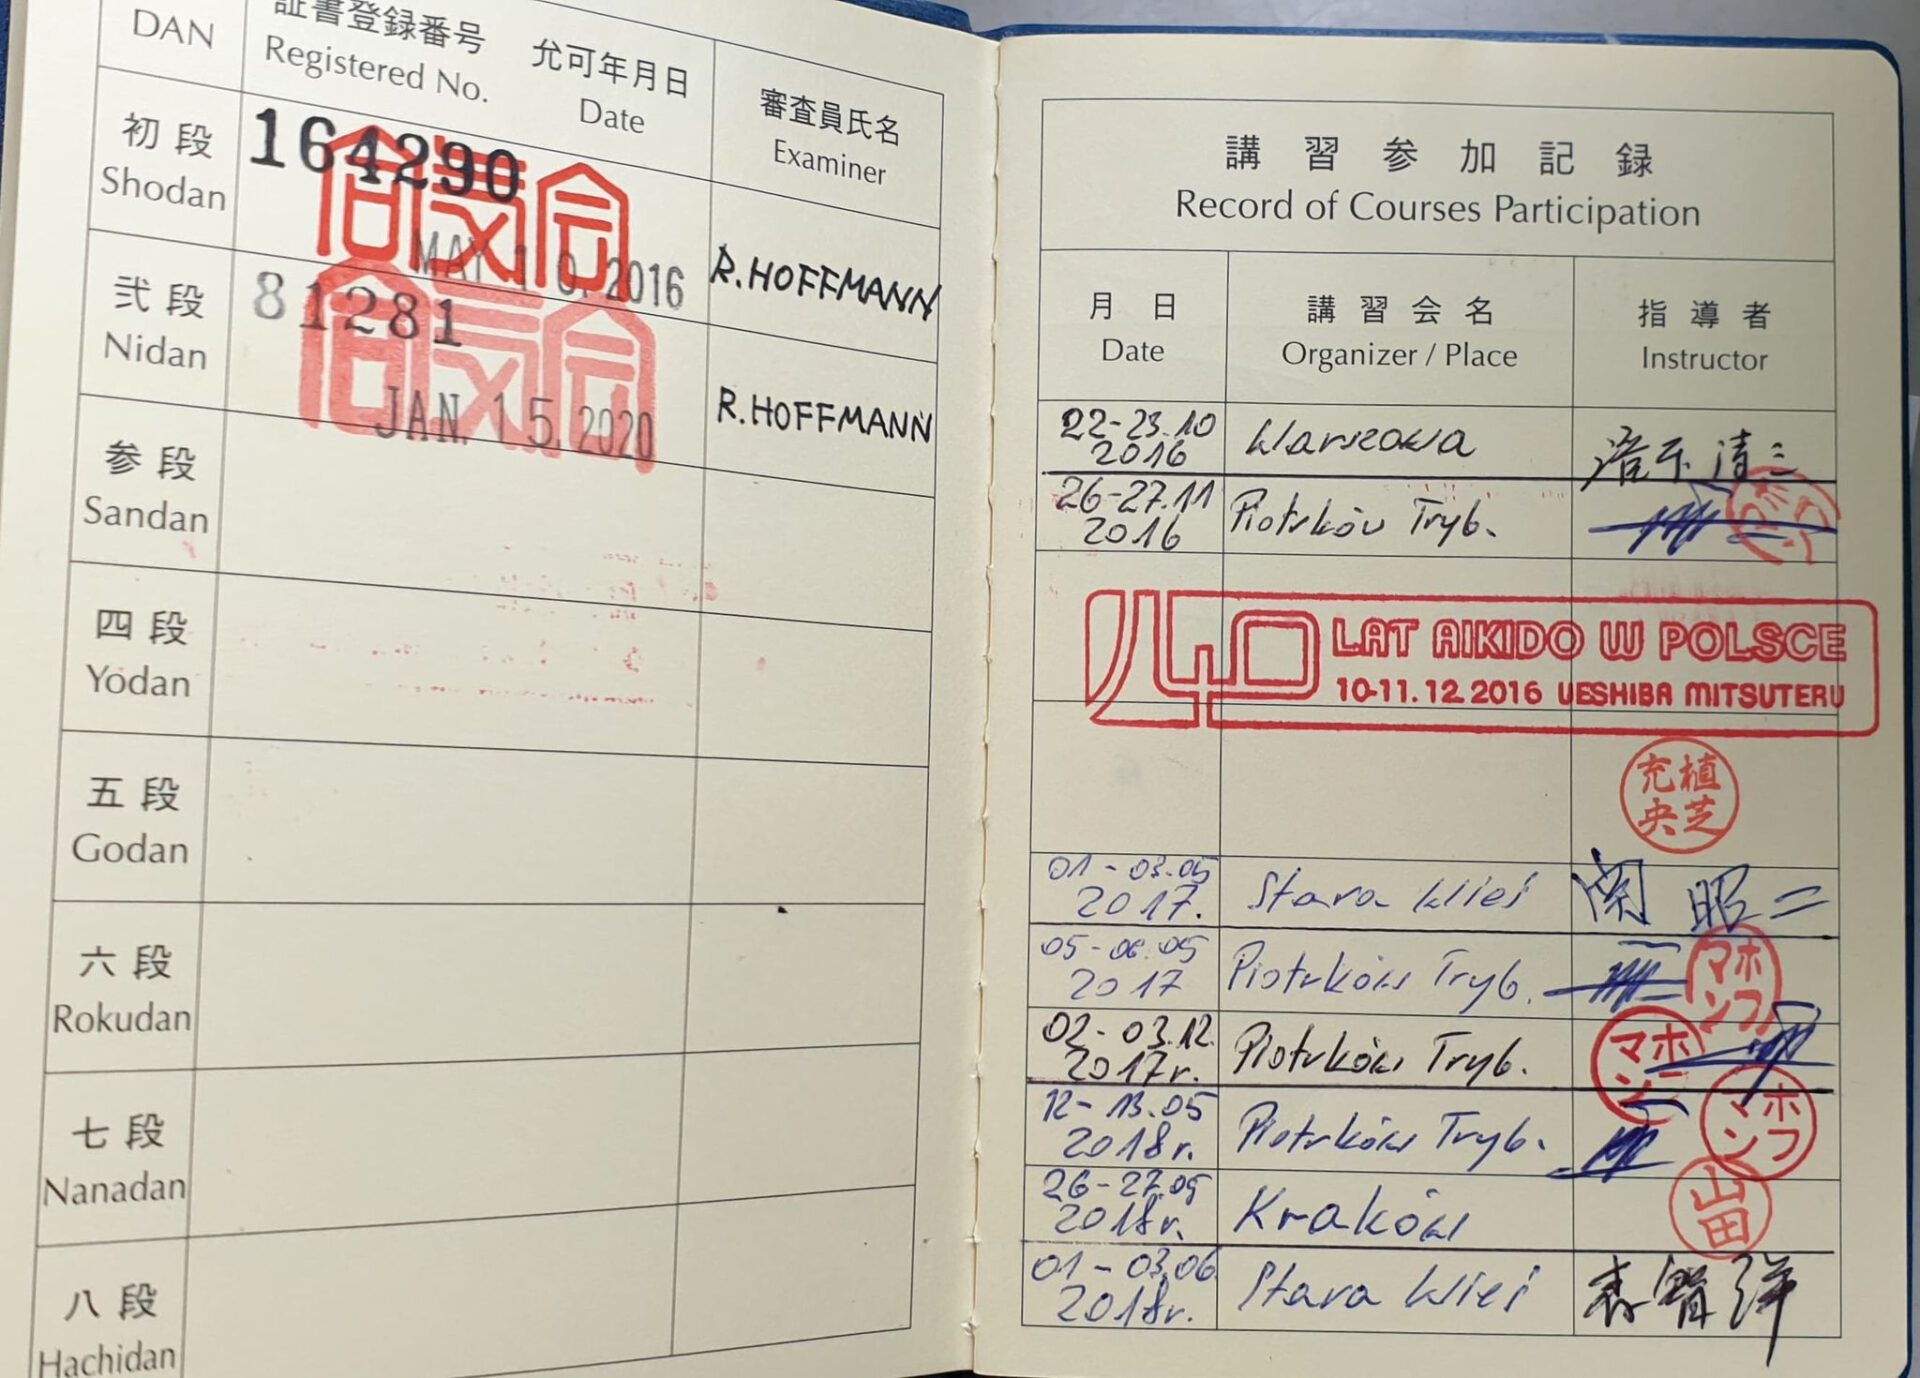 DAN
証書登録番号
Registered No.
允可年月日
Date
審査員氏名
Examiner
初段
Shodan
164290
合気会
MAY 10.2016
R.HOFFMANN
弐段
Nidan
81281
合気会
JAN.15.2020
R.HOFFMANN
参段
Sandan
四段
Yodan
五段
Godan
六段
Rokudan
七段
Nanadan
八段
Hachidan
講習参加記録
Record of Courses Participation
月日
Date
講習会名
Organizer / Place
指導者
Instructor
22-23.10
2016
Warszawa
清三
26-27.11
2016
Piotrków Tryb.
40 LAT AIKIDO W POLSCE
10-11.12.2016 UESHIBA MITSUTERU
植芝
充央
01-03.05
2017.
Stara Wieś
関昭二
05-06.05
2017
Piotrków Tryb.
ホフ
マン
02-03.12.
2017r.
Piotrków Tryb.
ホフ
マン
12-13.05
2018r.
Piotrków Tryb.
ホフ
マン
26-27.05
2018r.
Kraków
山田
01-03.06
2018r.
Stara Wieś
森智洋